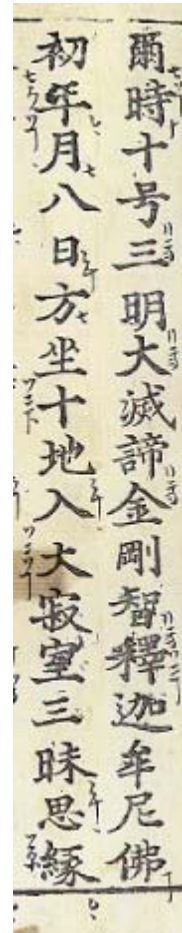 爾時十号三明大滅諦金剛智釋迦牟尼佛
初年月八日方坐十地入大寂室三昧思緣